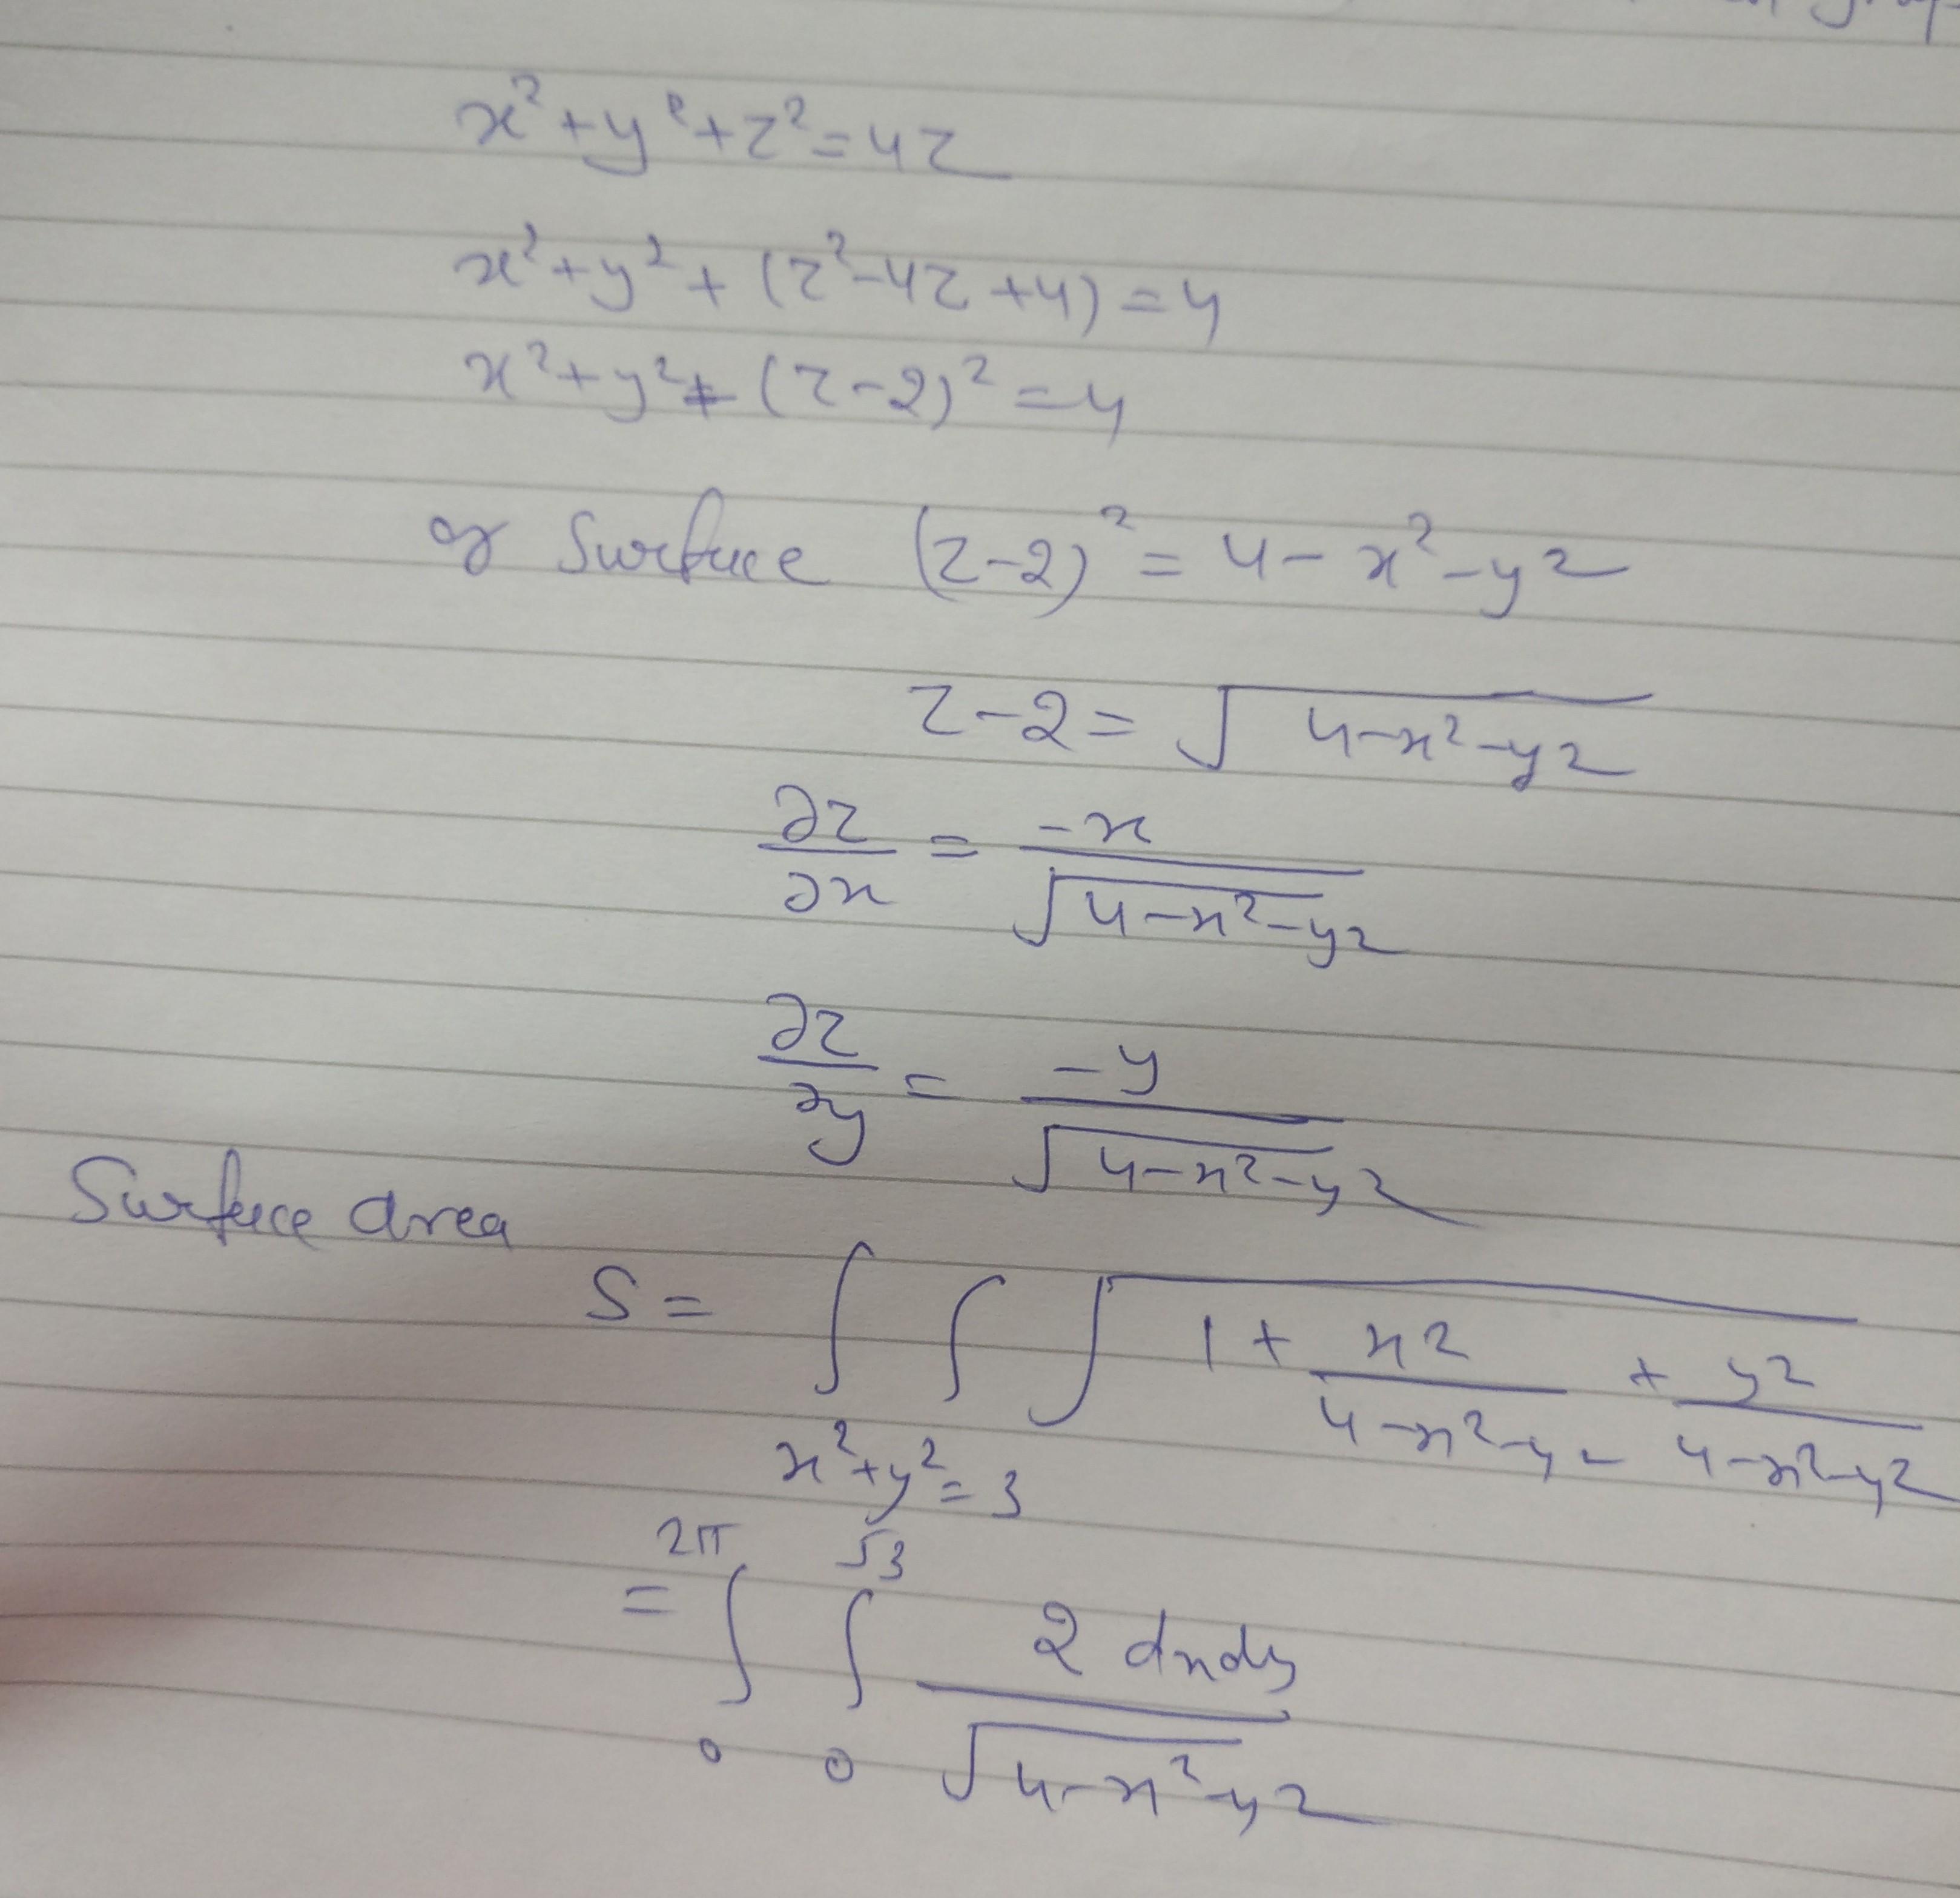 x²+y²+z²=4z
x²+y²+(z²-4z+4)=4
x²+y²+(z-2)²=4
or Surface (z-2)²=4-x²-y²
z-2=√(4-x²-y²)
∂z/∂x = -x/√(4-x²-y²)
∂z/∂y = -y/√(4-x²-y²)
Surface area
S= ∫∫√(1+x²/(4-x²-y²)+y²/(4-x²-y²))
x²+y²=3
= ∫₀^2π ∫₀^√3 2dxdy/√(4-x²-y²)